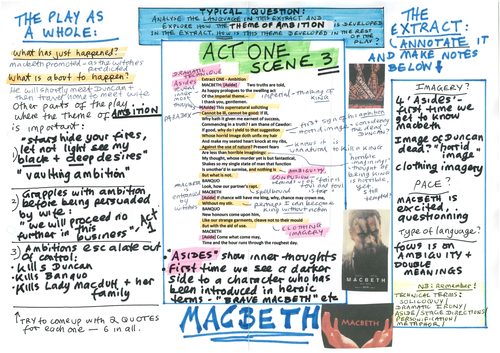 THE PLAY AS
A WHOLE:
What has just happened?
macbeth promoted - as the witches
predicted
What is about to happen?
He will shortly meet Duncan +
then travel home to meet wife.
Other parts of the play
where the theme of AMBITION
is important:
"stars hide your fires,
let not light see my
black + deep desires"
"vaulting ambition"
2) Grapples with ambition
before being persuaded
by wife:
"we will proceed no
further in this
business"
Act 1
3) Ambitions escalate out
of control:
Kills Duncan
Kills Banquo
Kills Lady Macduff + her
family
TRY TO COME UP WITH 2 QUOTES
for each one - 6 in all.
TYPICAL QUESTION:
ANALYSE THE LANGUAGE IN THIS EXTRACT AND
EXPLORE HOW THE THEME OF AMBITION IS DEVELOPED
IN THE EXTRACT. HOW IS THIS THEME DEVELOPED IN THE REST
OF THE PLAY?
ACT ONE
SCENE 3
DRAMATIC
TECHNIQUE
Asides
Extract One - Ambition
MACBETH [Aside] Two truths are told,
As happy prologues to the swelling act
Of the imperial theme.
I thank you, gentlemen.
[Aside] This supernatural soliciting
Cannot be ill, cannot be good: if ill,
Why hath it given me earnest of success,
Commencing in a truth? I am thane of Cawdor:
If good, why do I yield to that suggestion
Whose horrid image doth unfix my hair
And make my seated heart knock at my ribs,
Against the use of nature? Present fears
Are less than horrible imaginings:
My thought, whose murder yet is but fantastical,
Shakes so my single state of man that function
Is smother'd in surmise, and nothing is
But what is not.
BANQUO
Look, how our partner's rapt.
MACBETH
[Aside] If chance will have me king, why, chance may crown me,
Without my stir.
BANQUO
New honours come upon him,
Like our strange garments, cleave not to their mould
But with the aid of use.
MACBETH
[Aside] Come what come may,
Time and the hour runs through the roughest day.
PARADOX
AMBIGUITY
CONFUSION
CLOTHING
IMAGERY
"ASIDES" show inner thoughts
First time we see a darker
side to a character who has
been introduced in heroic
terms - "BRAVE MACBETH" etc
MACBETH
THE
EXTRACT:
ANNOTATE IT
AND MAKE
NOTES
BELOW
IMAGERY?
4 'Asides' -
first time we
get to know
Macbeth
Image of Duncan
dead? "horrid
image"
clothing imagery
PACE?
MACBETH is
excited,
questionning
Type of language?
focus is ON
AMBIGUITY +
DOUBLE
MEANINGS
NB: Remember!
TECHNICAL TERMS:
SOLILOQUY/
DRAMATIC IRONY/
ASIDE/STAGE DIRECTIONS/
PERSONIFICATION/
METAPHOR/
MACBETH
MACBETH